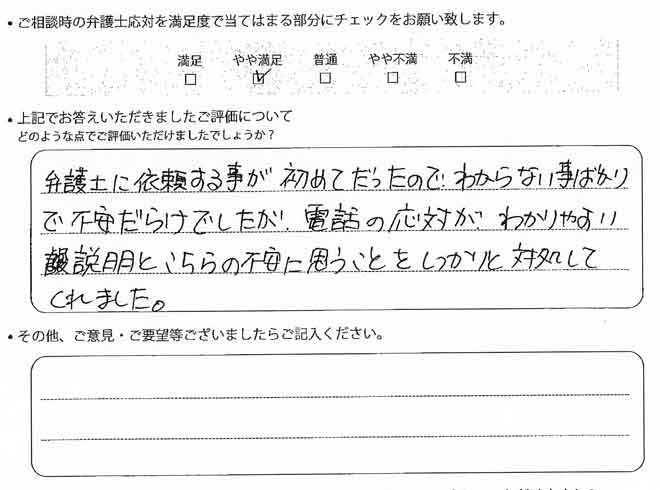 ・ご相談時の弁護士応対を満足度で当てはまる部分にチェックをお願い致します。
満足 やや満足 普通 やや不満 不満
□ ☑ □ □ □
・上記でお答えいただきましたご評価について
どのような点でご評価いただけましたでしょうか?
弁護士に依頼する事が初めてだったので、わからない事ばかり
で不安だらけでしたが、電話の応対が、わかりやすい
説明とこちらの不安に思うことをしっかりと対処して
くれました。
・その他、ご意見・ご要望等ございましたらご記入ください。